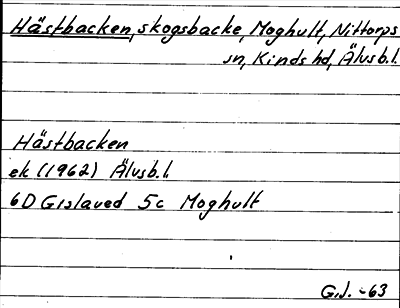 Hästbacken, skogsbacke, Moghult, Nittorps
sn, Kinds hd, Älvsb.l.
Hästbacken
ek (1962) Älvsb.l.
6D Gislaved 5c Moghult
G.J. -63